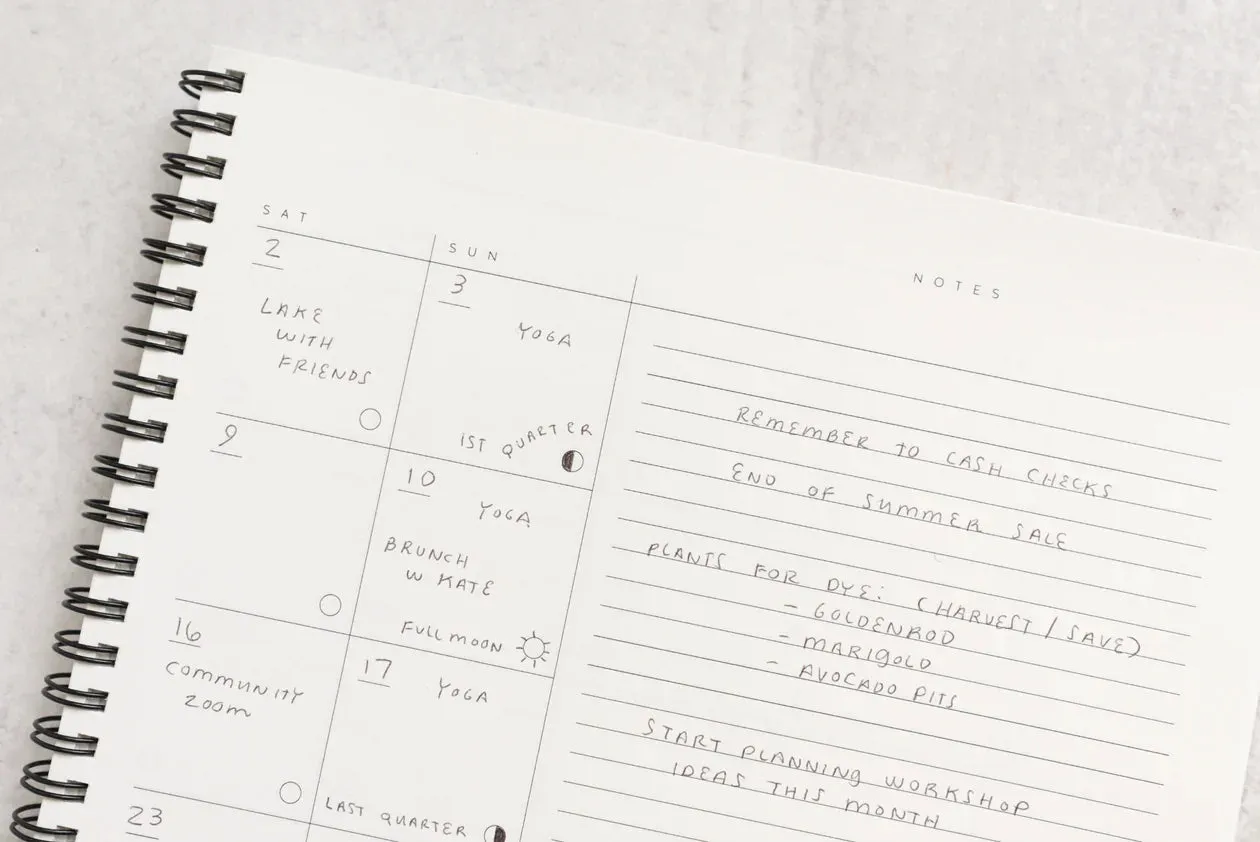 SAT
2
LAKE
WITH
FRIENDS
SUN
3
YOGA
1ST QUARTER
9
10
YOGA
BRUNCH
W KATE
FULL MOON
16
COMMUNITY
ZOOM
17
YOGA
LAST QUARTER
23
NOTES
REMEMBER TO CASH CHECKS
END OF SUMMER SALE
PLANTS FOR DYE: (HARVEST / SAVE)
- GOLDENROD
- MARIGOLD
- AVOCADO PITS
START PLANNING WORKSHOP
IDEAS THIS MONTH